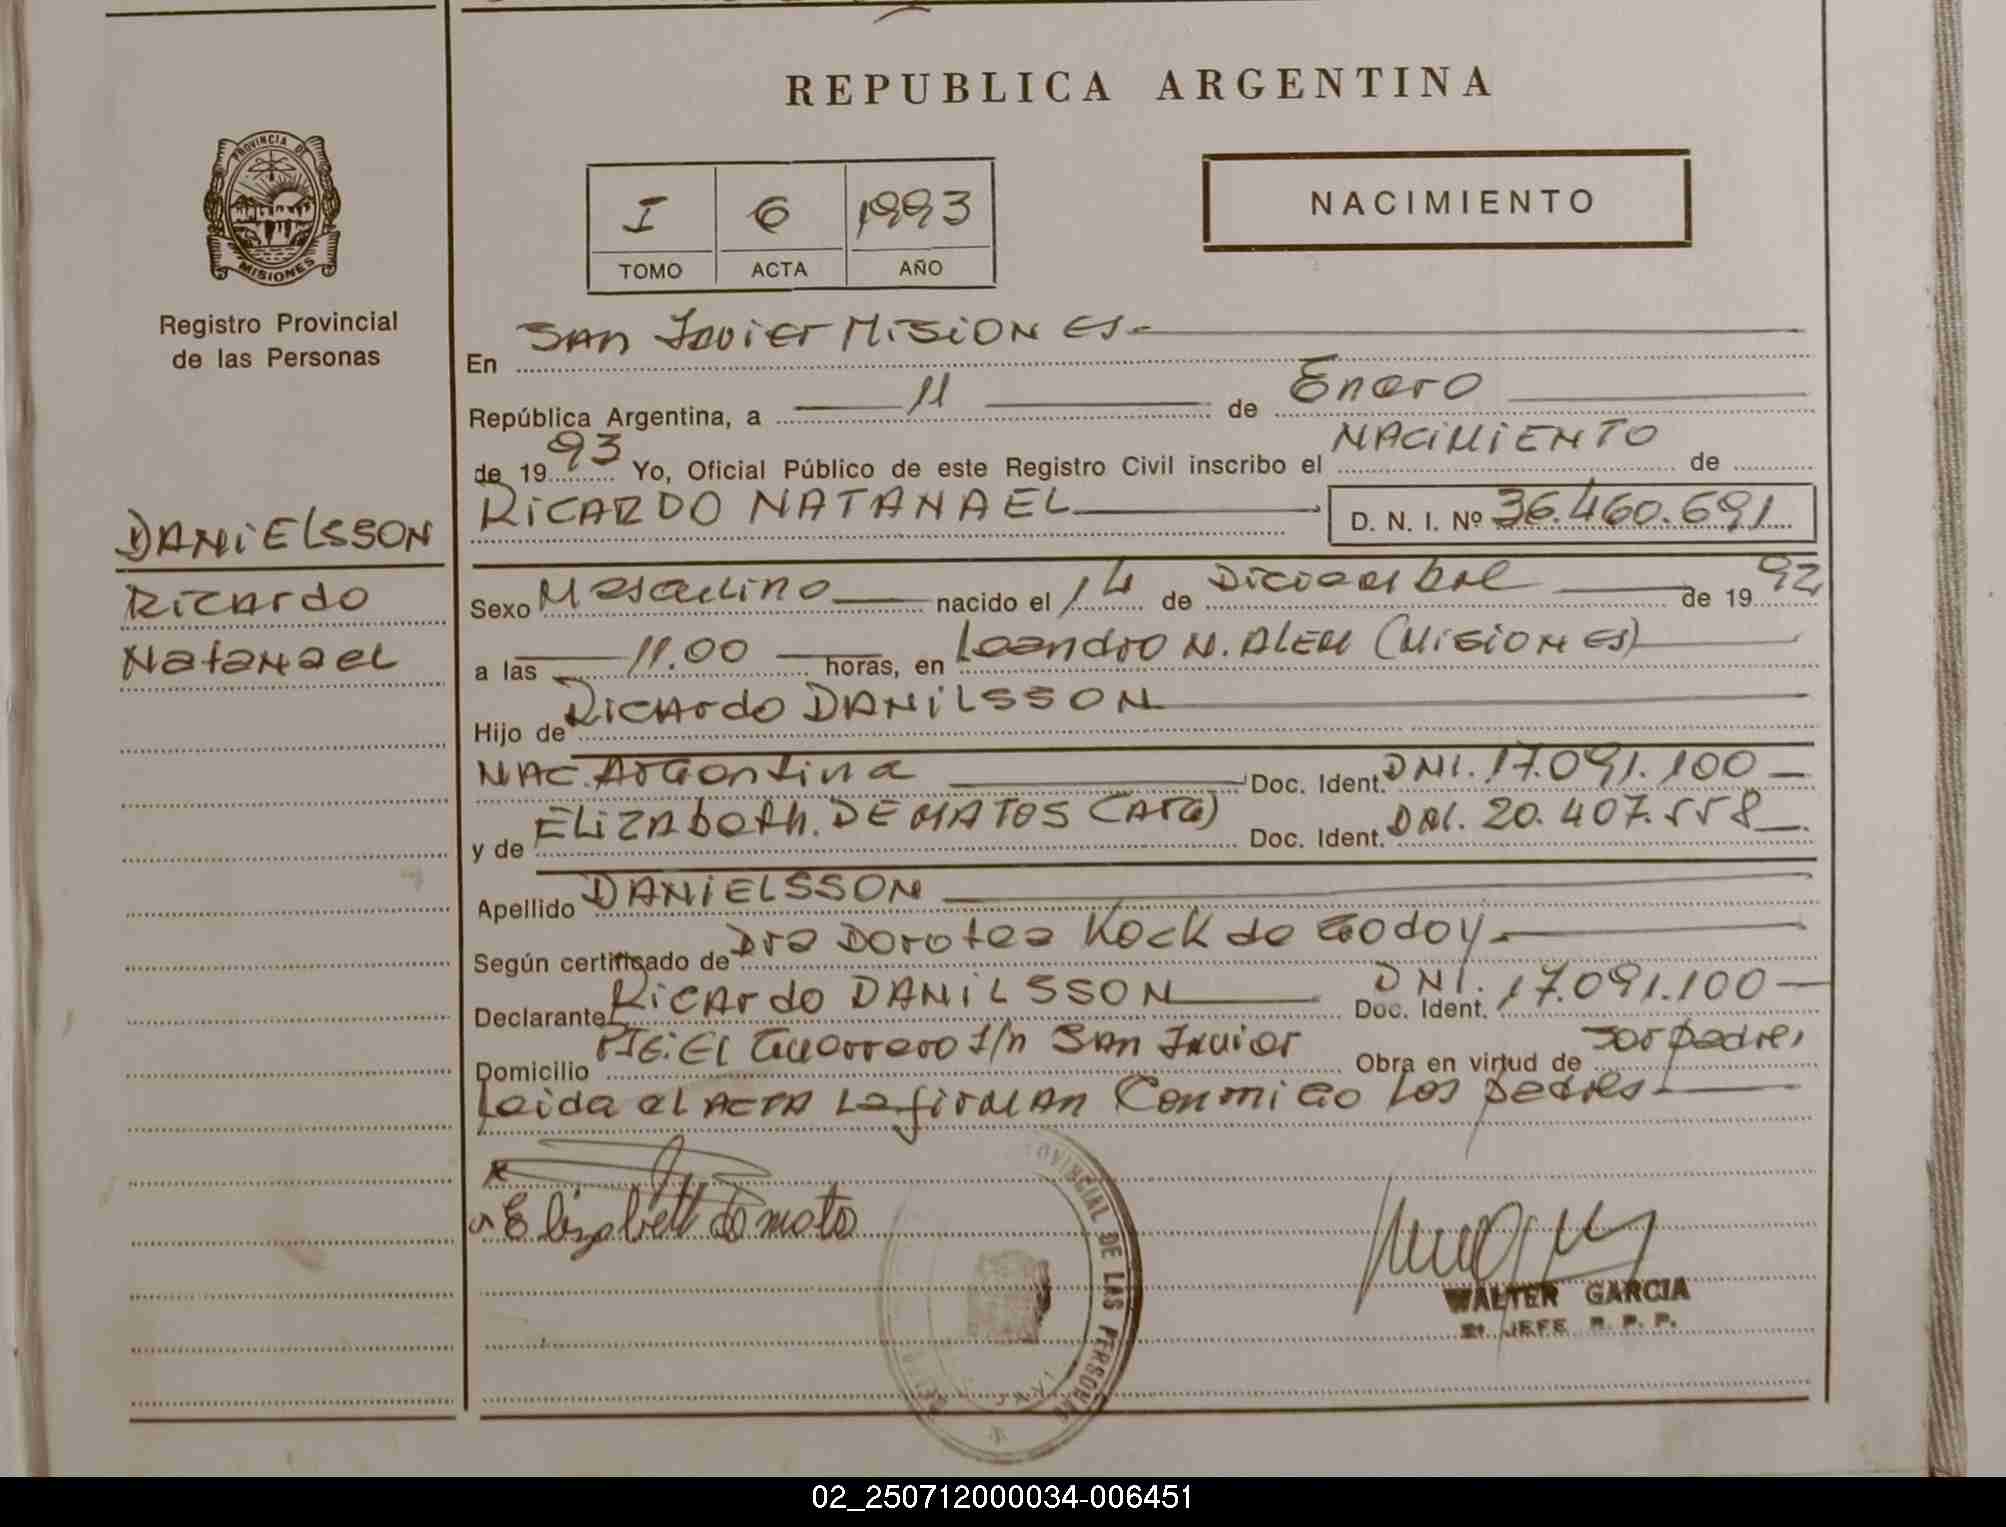 REPUBLICA ARGENTINA
PROVINCIA DE
MISIONES
Registro Provincial
de las Personas
I 6 1993
TOMO ACTA AÑO
NACIMIENTO
DANiELSSON
Ricardo
Natanael
En San Javier MISIONES.
República Argentina, a 11 de Enero
de 1993 Yo, Oficial Público de este Registro Civil inscribo el NACIMIENTO de
RICARDO NATANAEL D. N. I. Nº 36.460.691
Sexo Masculino nacido el 14 de Diciembre de 1992
a las 11.00 horas, en Leandro N. ALEM (MISIONES)
Hijo de Ricardo DANiLSSON
NAC. Argentina Doc. Ident. DNI. 17.091.100
y de ELIZAbeth. DE MATOS (ARG) Doc. Ident. DNI. 20.407.558
Apellido DANIELSSON
Según certificado de Dra Dorotea Kock de Godoy.
Declarante Ricardo DANiLSSON Doc. Ident. DNI. 17.091.100
Domicilio Pje. El Guerrero S/n San Javier Obra en virtud de ser padres
Leida el ACTA La firman Conmigo Los padres
Elizabett de mato
PROVINCIAL DE LAS PERSONAS
WALTER GARCIA
JEFE R. P. P.
02_250712000034-006451